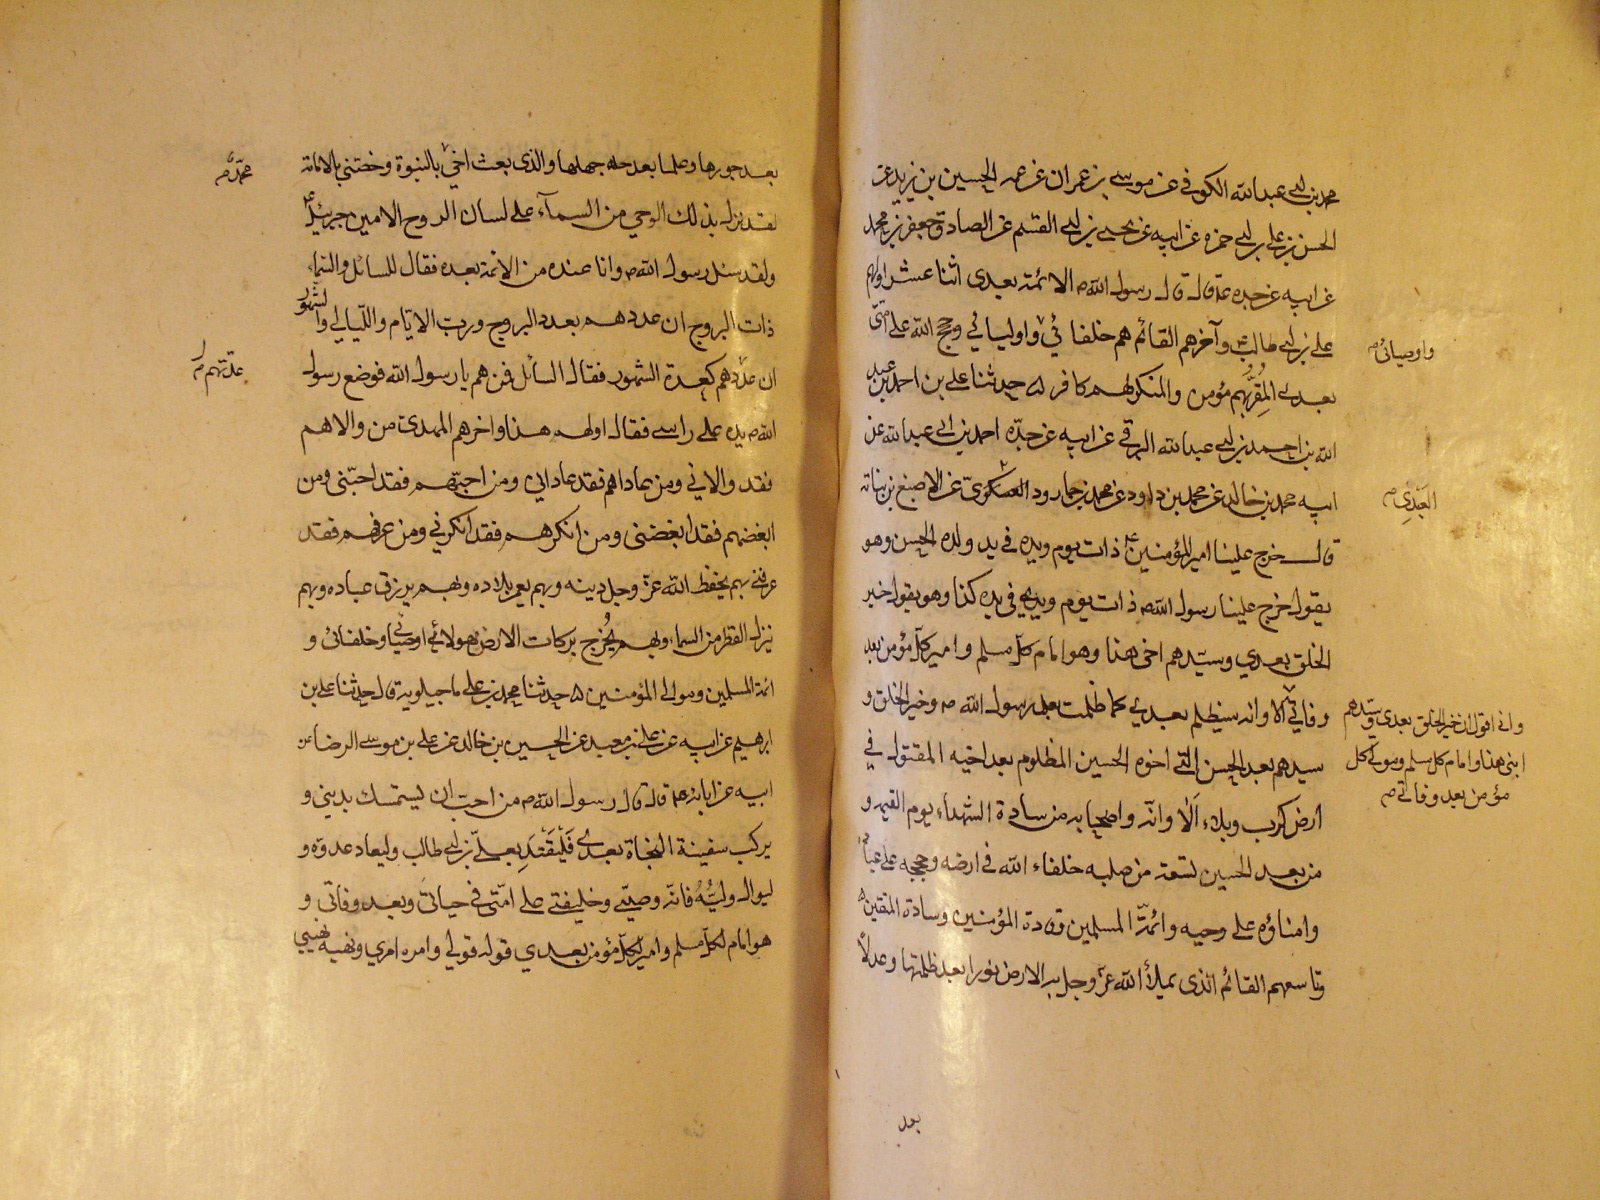 محمد بن ابي عبد الله الكوفي عن موسى بن عمران عن عمه الحسين بن يزيد عن
الحسن بن علي بن ابي حمزه عن ابيه عن يحيى بن ابي القسم عن الصادق جعفر بن محمد
عن ابيه عن جده ع قال قال رسول الله ص الائمة بعدي اثنا عشر اولهم
علي بن ابي طالب ع وآخرهم القائم هم خلفائي واوليائي وحجج الله على امتي
واوصيائي ص
بعدي المقر بهم مؤمن والمنكر لهم كافر ٥ حدثنا علي بن احمد بن عبد
الله بن احمد بن ابي عبد الله البرقي عن ابيه عن جده احمد بن ابي عبد الله عن
ابيه محمد بن خالد عن محمد بن داود عن محمد بن جارود العسكري عن الاصبغ بن نباته
العبدي ص
قال خرج علينا امير المؤمنين ع ذات يوم ويده في يد ولده الحسن وهو
يقول خرج علينا رسول الله ص ذات يوم ويدي في يده كذا وهو يقول خير
الخلق بعدي وسيدهم اخي هذا وهو امام كل مسلم وامير كل مؤمن بعد
وفاتي الا وانه سيظلم بعدي كما ظلمت بعد رسول الله ص وخير الخلق و
واني اقول ان خير الخلق بعدي وسيدهم
ابني هذا وامام كل مسلم ومولى كل
مؤمن بعد وفاتي ص
سيدهم بعد الحسن ابني اخوه الحسين المظلوم بعد اخيه المقتول في
ارض كرب وبلاء الا وانه واصحابه من سادة الشهداء يوم القيمه و
من بعد الحسين تسعة من صلبه خلفاء الله في ارضه وحججه على عباده
وامناؤه على وحيه وائمة المسلمين وقادة المؤمنين وسادة المتقين
وتاسعهم القائم الذي يملأ الله عز وجل به الارض نورا بعد ظلمتها وعدلا
بعد
بعد جورها وعلما بعد جهلها والذي بعث اخي بالنبوة وخصني بالامامة
محمد ص
لقد نزل بذلك الوحي من السماء على لسان الروح الامين جبرئيل ع
ولقد سئل رسول الله ص وانا عنده من الائمة بعده فقال للسائل والسماء
ذات البروج ان عددهم بعدد البروج ورب الايام والليالي والشهور
ان عددهم كعدة الشهور فقال السائل فمن هم يا رسول الله فوضع رسول
عدتهم ص
الله ص يده على راسي فقال اولهم هذا واخرهم المهدي من والاهم
فقد والاني ومن عاداهم فقد عاداني ومن احبهم فقد احبني ومن
ابغضهم فقد ابغضني ومن انكرهم فقد انكرني ومن عرفهم فقد
عرفني بهم يحفظ الله عز وجل دينه وبهم يعمر بلاده وبهم يرزق عباده وبهم
نزل القطر من السماء وبهم يخرج بركات الارض هولائي اوصيائي وخلفائي و
ائمة المسلمين وموالي المؤمنين ٥ حدثنا محمد بن علي ماجيلويه قال حدثنا علي بن
ابرهيم عن ابيه عن علي بن معبد عن الحسين بن خالد عن علي بن موسى الرضا عن
ابيه عن ابائه ع قال قال رسول الله ص من احب ان يستمسك بديني و
يركب سفينة النجاة بعدي فليقتد بعلي بن ابي طالب وليعاد عدوه و
ليوال وليه فانه وصيي وخليفتي على امتي في حياتي وبعد وفاتي و
هو امام لكل مسلم وامير لكل مؤمن بعدي قوله قولي وامره امري ونهيه نهيي